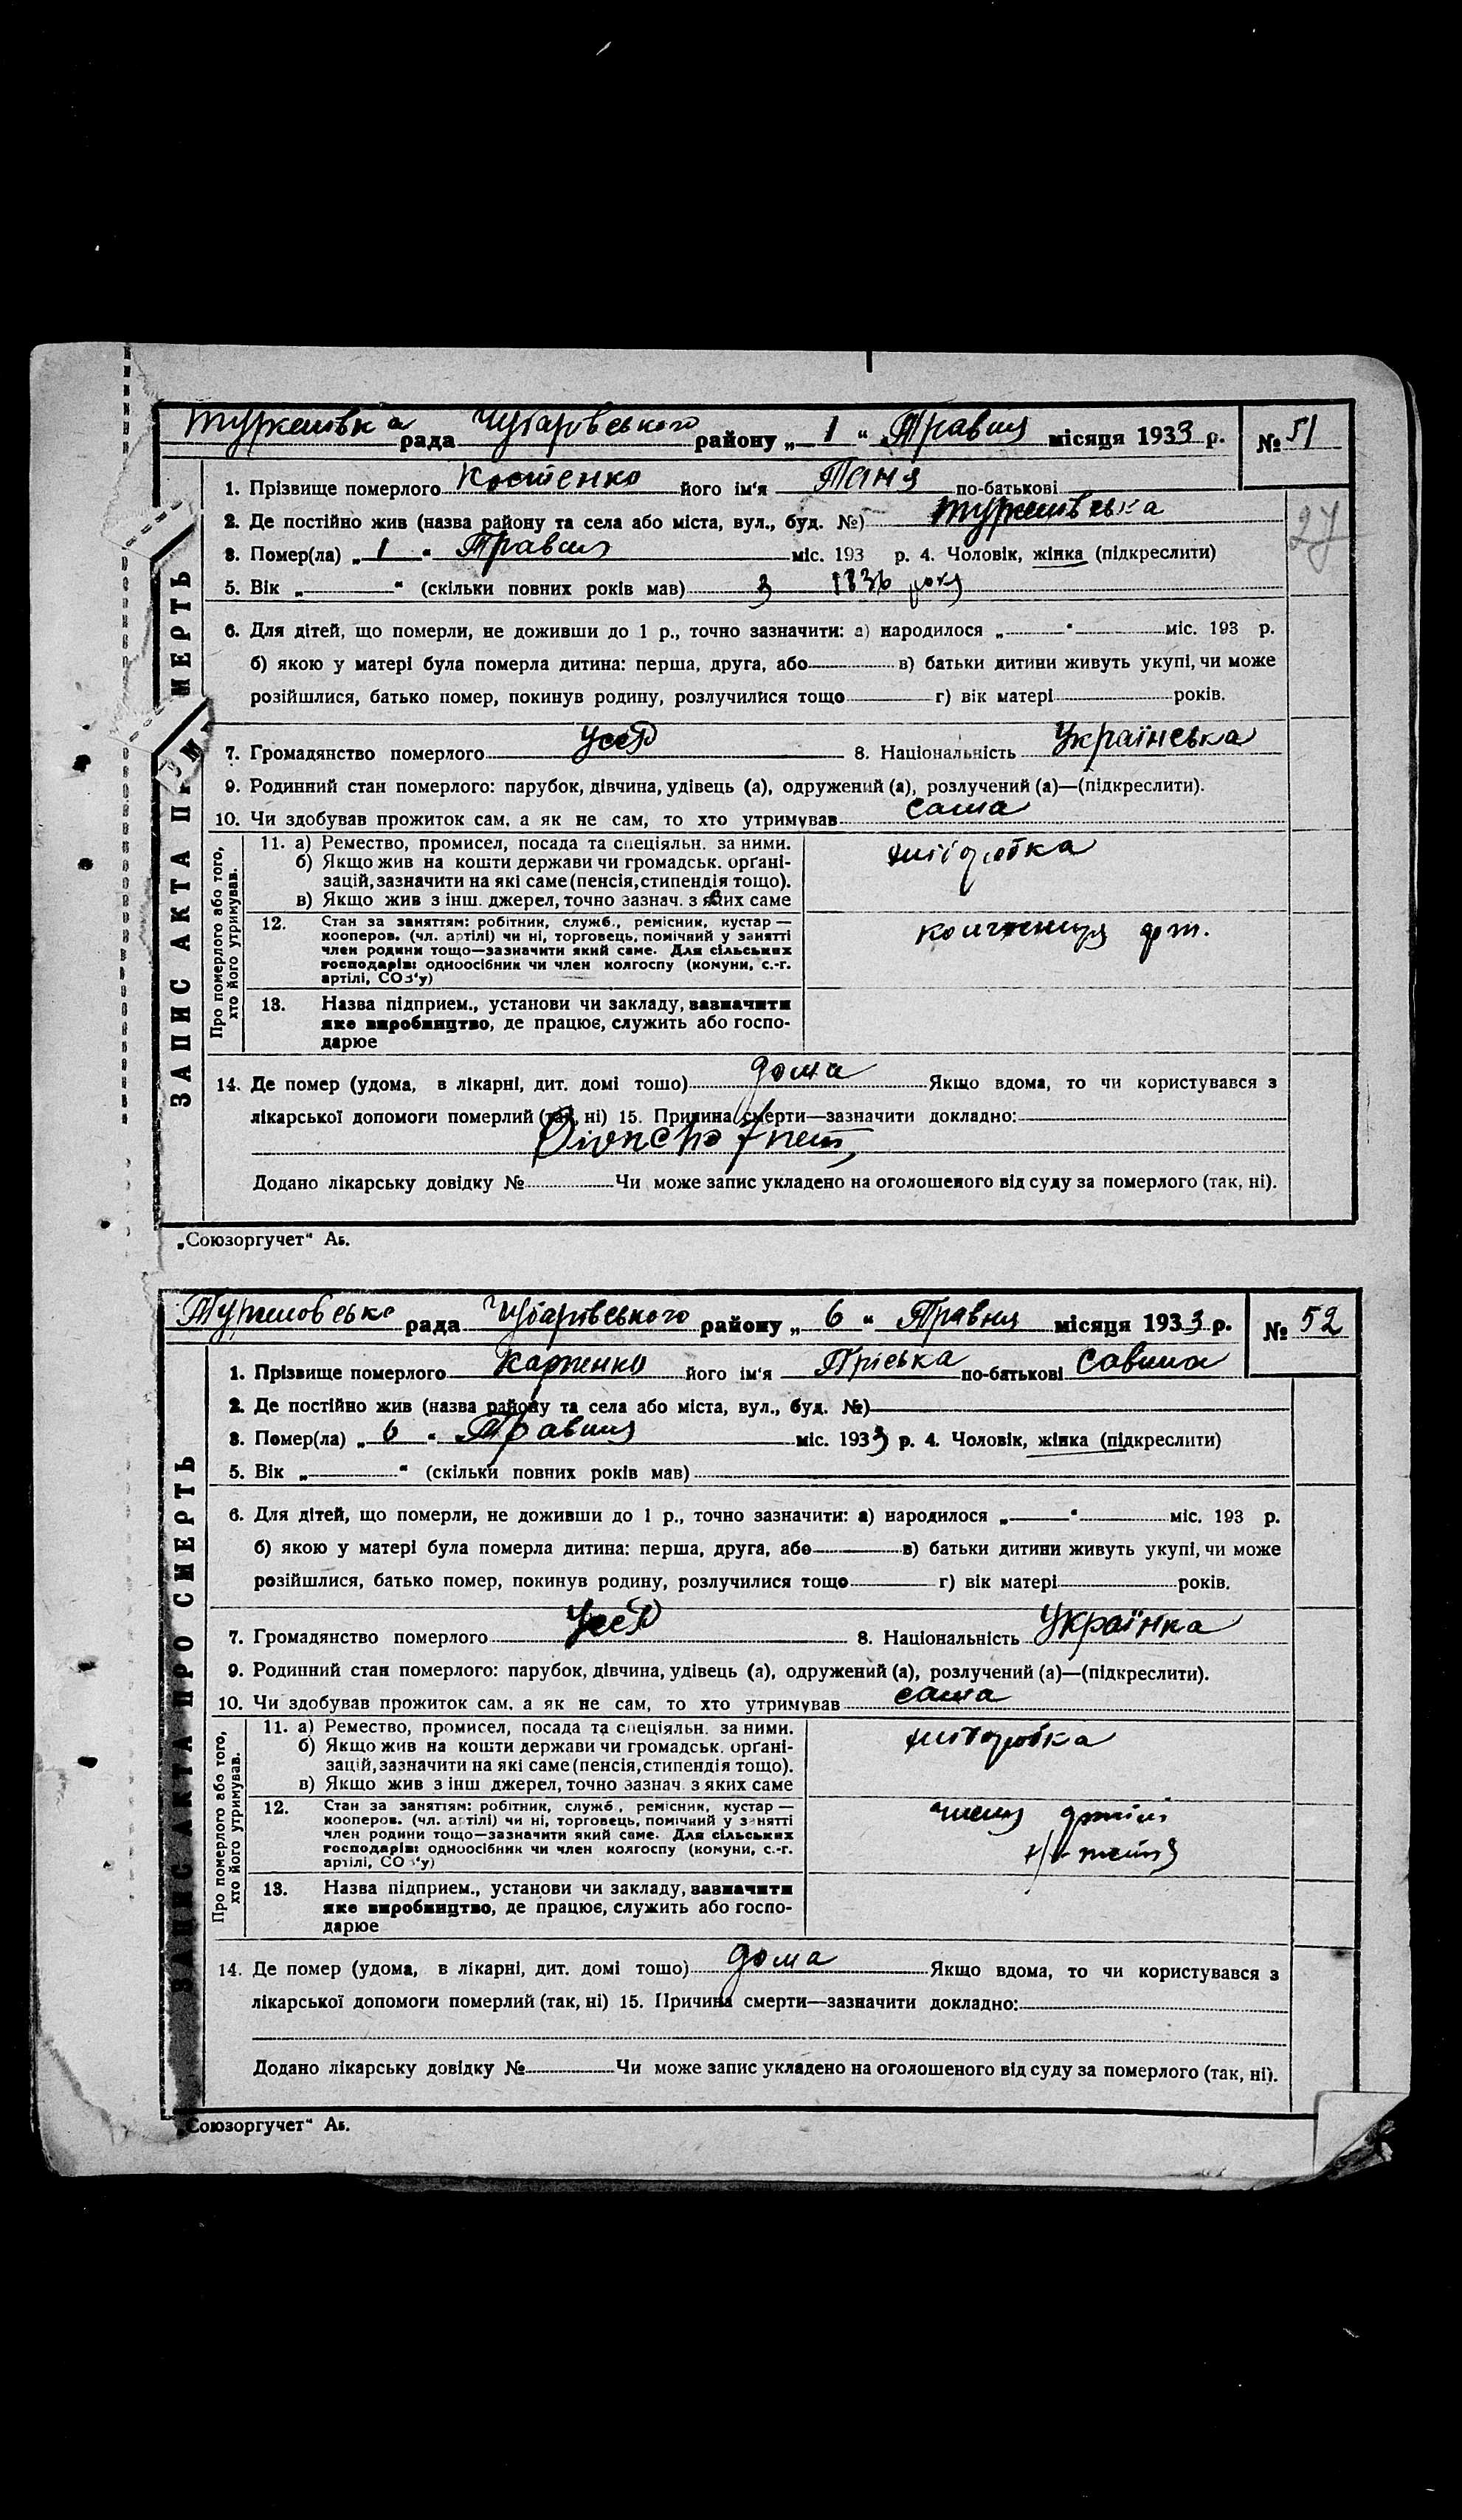 Чубарівського
рада району „ 1 “ Травня місяця 1933 р. № 51
1. Прізвище померлого Костенко його ім'я Таня по-батькові
2. Де постійно жив (назва району та села або міста, вул., буд. №)
3. Помер(ла) „ 1 “ Травня міс. 193 р. 4. Чоловік, жінка (підкреслити)
27
5. Вік „ “ (скільки повних років мав) з року
6. Для дітей, що померли, не доживши до 1 р., точно зазначити: а) народилося „ “ міс. 193 р.
б) якою у матері була померла дитина: перша, друга, або в) батьки дитини живуть укупі, чи може
розійшлися, батько помер, покинув родину, розлучилися тощо г) вік матері років.
7. Громадянство померлого УССР 8. Національність Українська
9. Родинний стан померлого: парубок, дівчина, удівець (а), одружений (а), розлучений (а)—(підкреслити).
10. Чи здобував прожиток сам, а як не сам, то хто утримував сама
Про померлого або того,
хто його утримував.
11. а) Ремество, промисел, посада та спеціяльн. за ними.
б) Якщо жив на кошти держави чи громадськ. органі-
зацій, зазначити на які саме (пенсія, стипендія тощо).
в) Якщо жив з інш. джерел, точно зазнач. з яких саме
12. Стан за заняттям: робітник, служб., ремісник, кустар —
кооперов. (чл. артілі) чи ні, торговець, помічний у занятті
член родини тощо—зазначити який саме. Для сільських
господарів: одноосібник чи член колгоспу (комуни, с.-г.
артілі, СОЗ'у)
13. Назва підприєм., установи чи закладу, зазначити
яке виробництво, де працює, служить або госпо-
дарює
14. Де помер (удома, в лікарні, дит. домі тощо) дома Якщо вдома, то чи користувався з
лікарської допомоги померлий (так, ні) 15. Причина смерти—зазначити докладно:
Додано лікарську довідку № Чи може запис укладено на оголошеного від суду за померлого (так, ні).
ЗАПИС АКТА ПРО СМЕРТЬ
„Союзоргучет“ Аб.
Чубарівського
рада району „ 6 “ Травня місяця 1933 р. № 52
1. Прізвище померлого Карпенко його ім'я Пріська по-батькові
2. Де постійно жив (назва району та села або міста, вул., буд. №)
3. Помер(ла) „ 6 “ Травня міс. 1933 р. 4. Чоловік, жінка (підкреслити)
5. Вік „ “ (скільки повних років мав)
6. Для дітей, що померли, не доживши до 1 р., точно зазначити: а) народилося „ “ міс. 193 р.
б) якою у матері була померла дитина: перша, друга, або в) батьки дитини живуть укупі, чи може
розійшлися, батько помер, покинув родину, розлучилися тощо г) вік матері років.
7. Громадянство померлого УССР 8. Національність Українка
9. Родинний стан померлого: парубок, дівчина, удівець (а), одружений (а), розлучений (а)—(підкреслити).
10. Чи здобував прожиток сам, а як не сам, то хто утримував сама
Про померлого або того,
хто його утримував.
11. а) Ремество, промисел, посада та спеціяльн. за ними.
б) Якщо жив на кошти держави чи громадськ. органі-
зацій, зазначити на які саме (пенсія, стипендія тощо).
в) Якщо жив з інш джерел, точно зазнач. з яких саме
12. Стан за заняттям: робітник, служб., ремісник, кустар —
кооперов. (чл. артілі) чи ні, торговець, помічний у занятті
член родини тощо—зазначити який саме. Для сільських
господарів: одноосібник чи член колгоспу (комуни, с.-г.
артілі, СОЗ'у)
13. Назва підприєм., установи чи закладу, зазначити
яке виробництво, де працює, служить або госпо-
дарює
14. Де помер (удома, в лікарні, дит. домі тощо) дома Якщо вдома, то чи користувався з
лікарської допомоги померлий (так, ні) 15. Причина смерти—зазначити докладно:
Додано лікарську довідку № Чи може запис укладено на оголошеного від суду за померлого (так, ні).
ЗАПИС АКТА ПРО СМЕРТЬ
„Союзоргучет“ Аб.